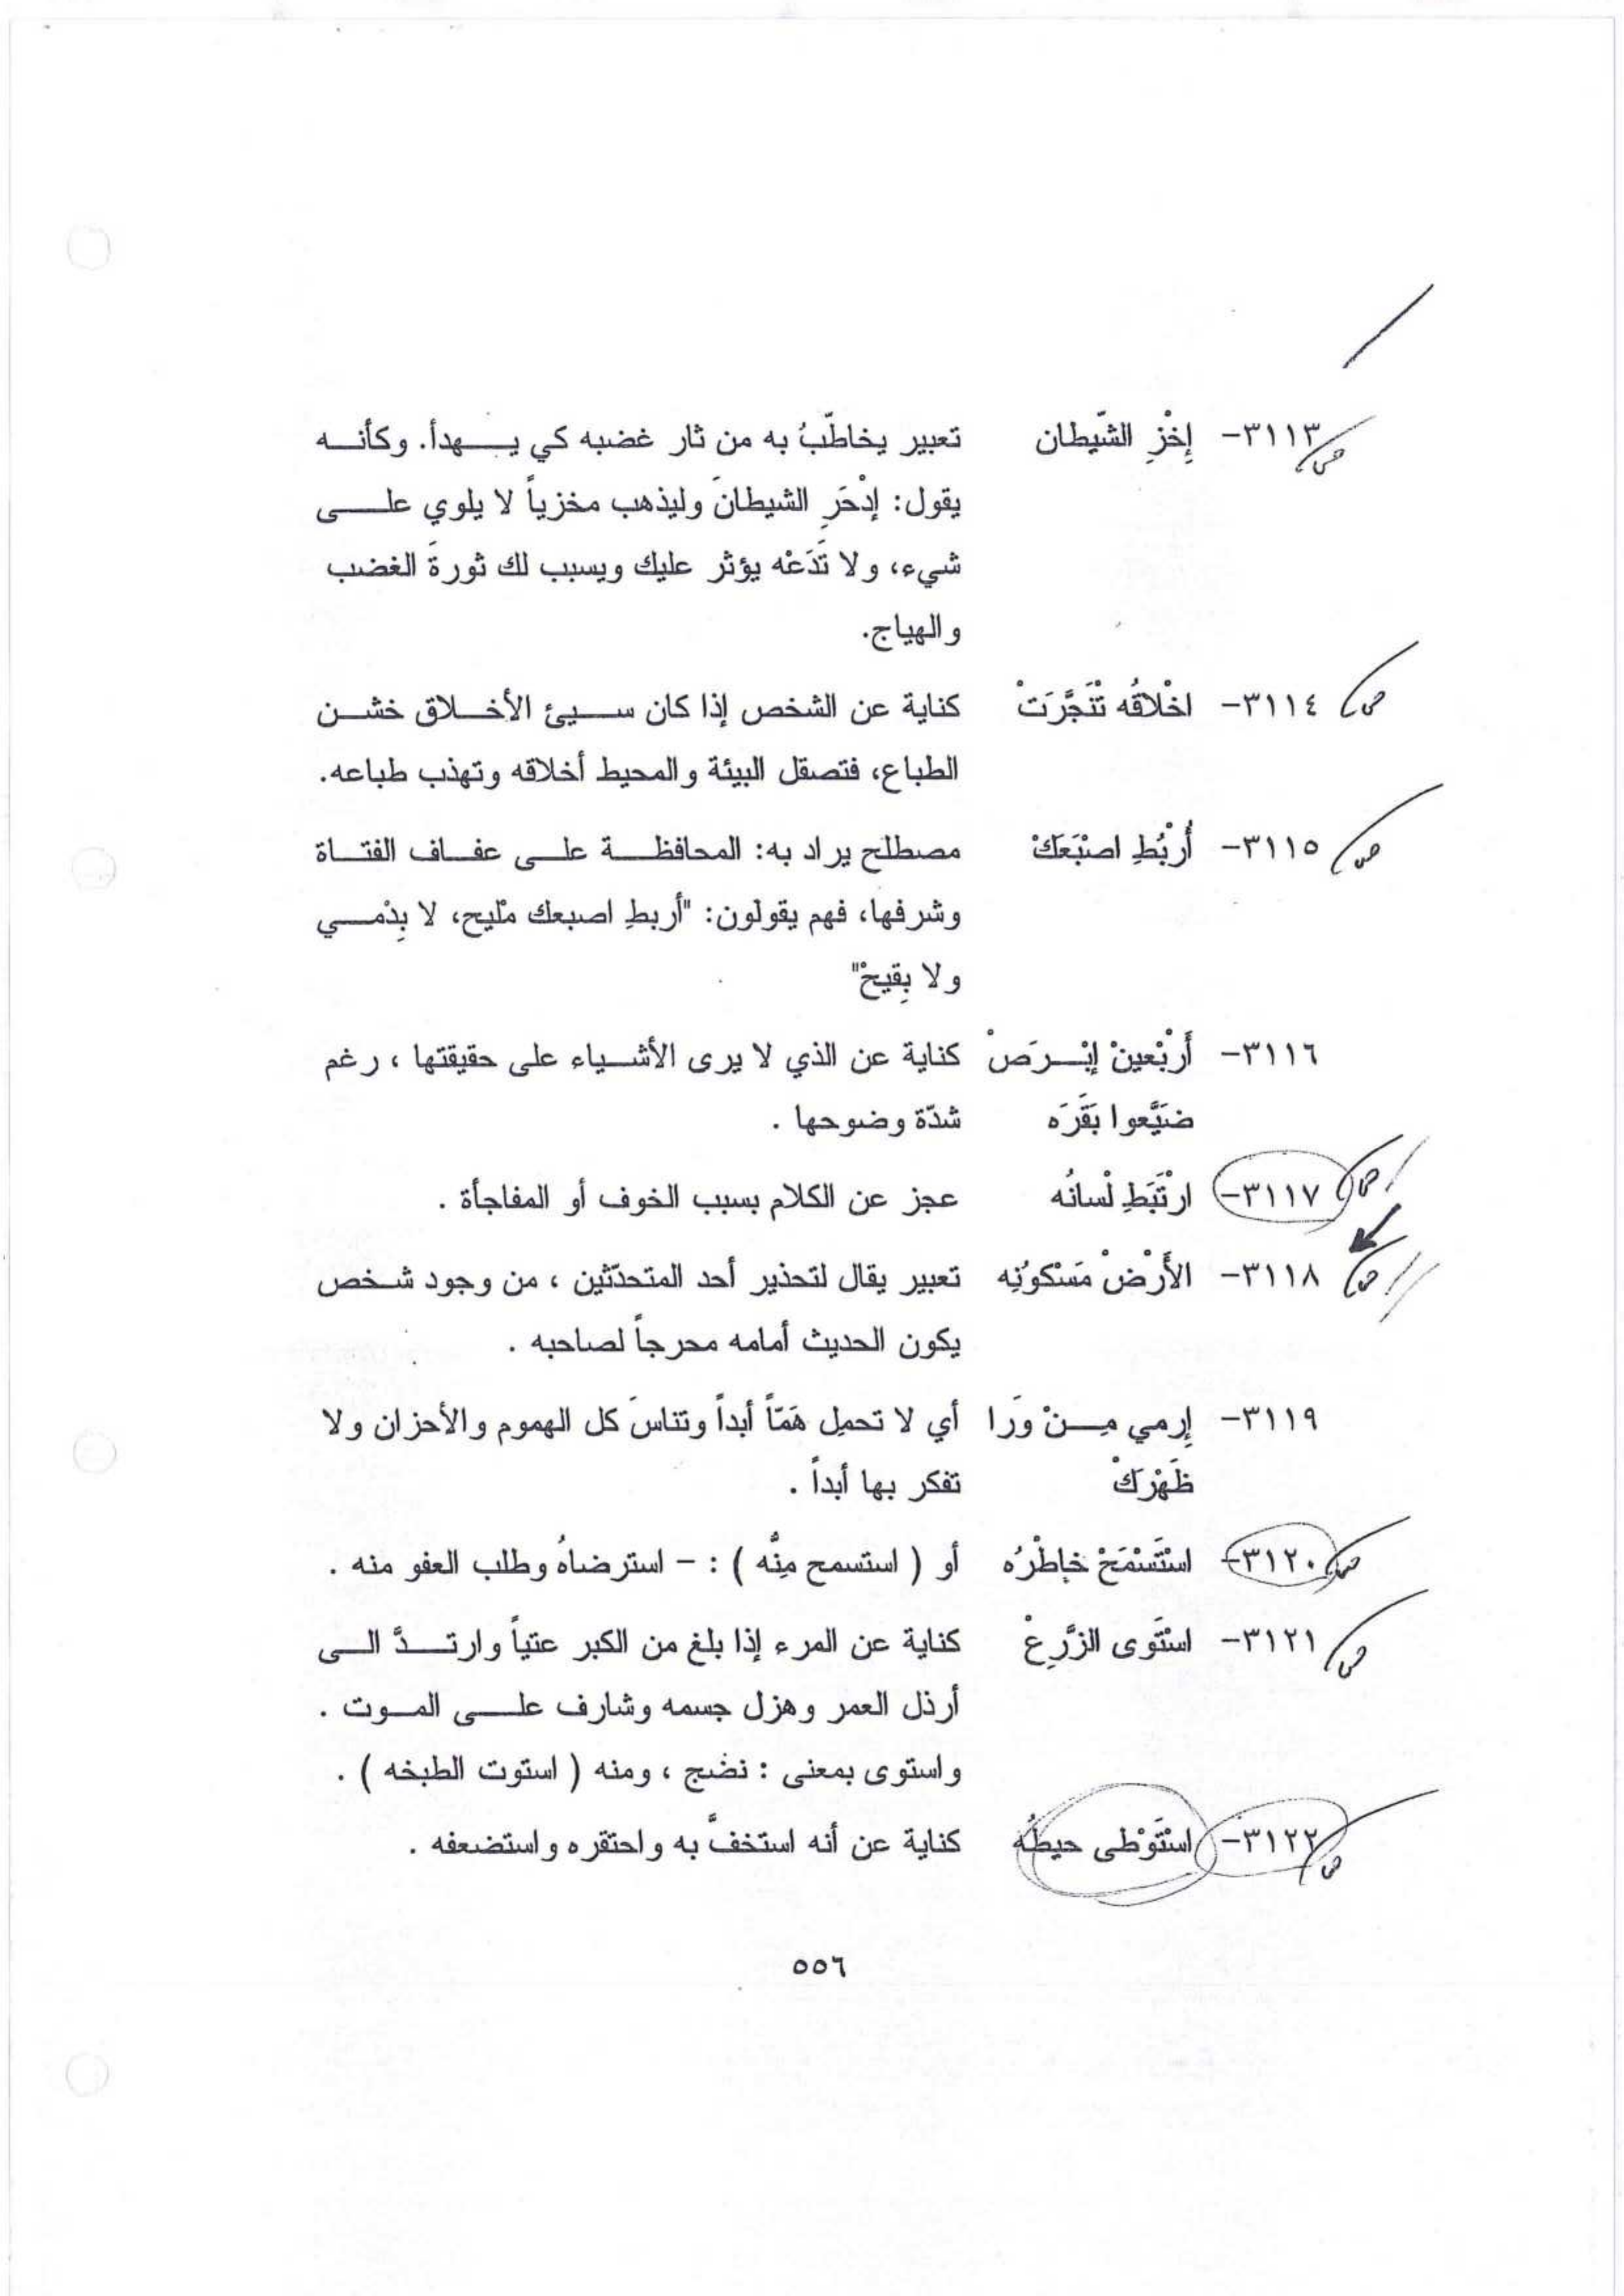 ٣١١٣- إِخْزِ الشّيطان تعبير يخاطَبُ به من ثار غضبه كي يهدأ. وكأنه
يقول: إدْحَرِ الشيطانَ وليذهب مخزياً لا يلوي على
شيء، ولا تَدَعْه يؤثر عليك ويسبب لك ثورةَ الغضب
والهياج.
ص ٣١١٤- اخْلاقُه تْنَجَّرَتْ كناية عن الشخص إذا كان سيئ الأخلاق خشن
الطباع، فتصقل البيئة والمحيط أخلاقه وتهذب طباعه.
ص ٣١١٥- أُرْبُطِ اصْبَعَكْ مصطلح يراد به: المحافظة على عفاف الفتاة
وشرفها، فهم يقولون: "أربطِ اصبعك مْليح، لا بِدْمي
ولا بِقيحْ"
٣١١٦- أَرْبْعينْ إبْرَصْ كناية عن الذي لا يرى الأشياء على حقيقتها ، رغم
ضَيَّعوا بَقَرَه شدّة وضوحها .
ص ٣١١٧- ارْتَبَطِ لْسانُه عجز عن الكلام بسبب الخوف أو المفاجأة .
ص ٣١١٨- الأَرْضْ مَسْكونِه تعبير يقال لتحذير أحد المتحدّثين ، من وجود شخص
يكون الحديث أمامه محرجاً لصاحبه .
٣١١٩- إِرمي مِنْ وَرا أي لا تحمِل هَمّاً أبداً وتناسَ كل الهموم والأحزان ولا
ظَهْرَكْ تفكر بها أبداً .
ص ٣١٢٠- اسْتَسْمَحْ خاطْرُه أو ( استسمح مِنُّه ) : - استرضاهُ وطلب العفو منه .
ص ٣١٢١- اسْتَوى الزَّرِعْ كناية عن المرء إذا بلغ من الكبر عتياً وارتدَّ الى
أرذل العمر وهزل جسمه وشارف على الموت .
واستوى بمعنى : نضج ، ومنه ( استوت الطبخه ) .
ص ٣١٢٢- اسْتَوْطى حيطُه كناية عن أنه استخفَّ به واحتقره واستضعفه .
٥٥٦